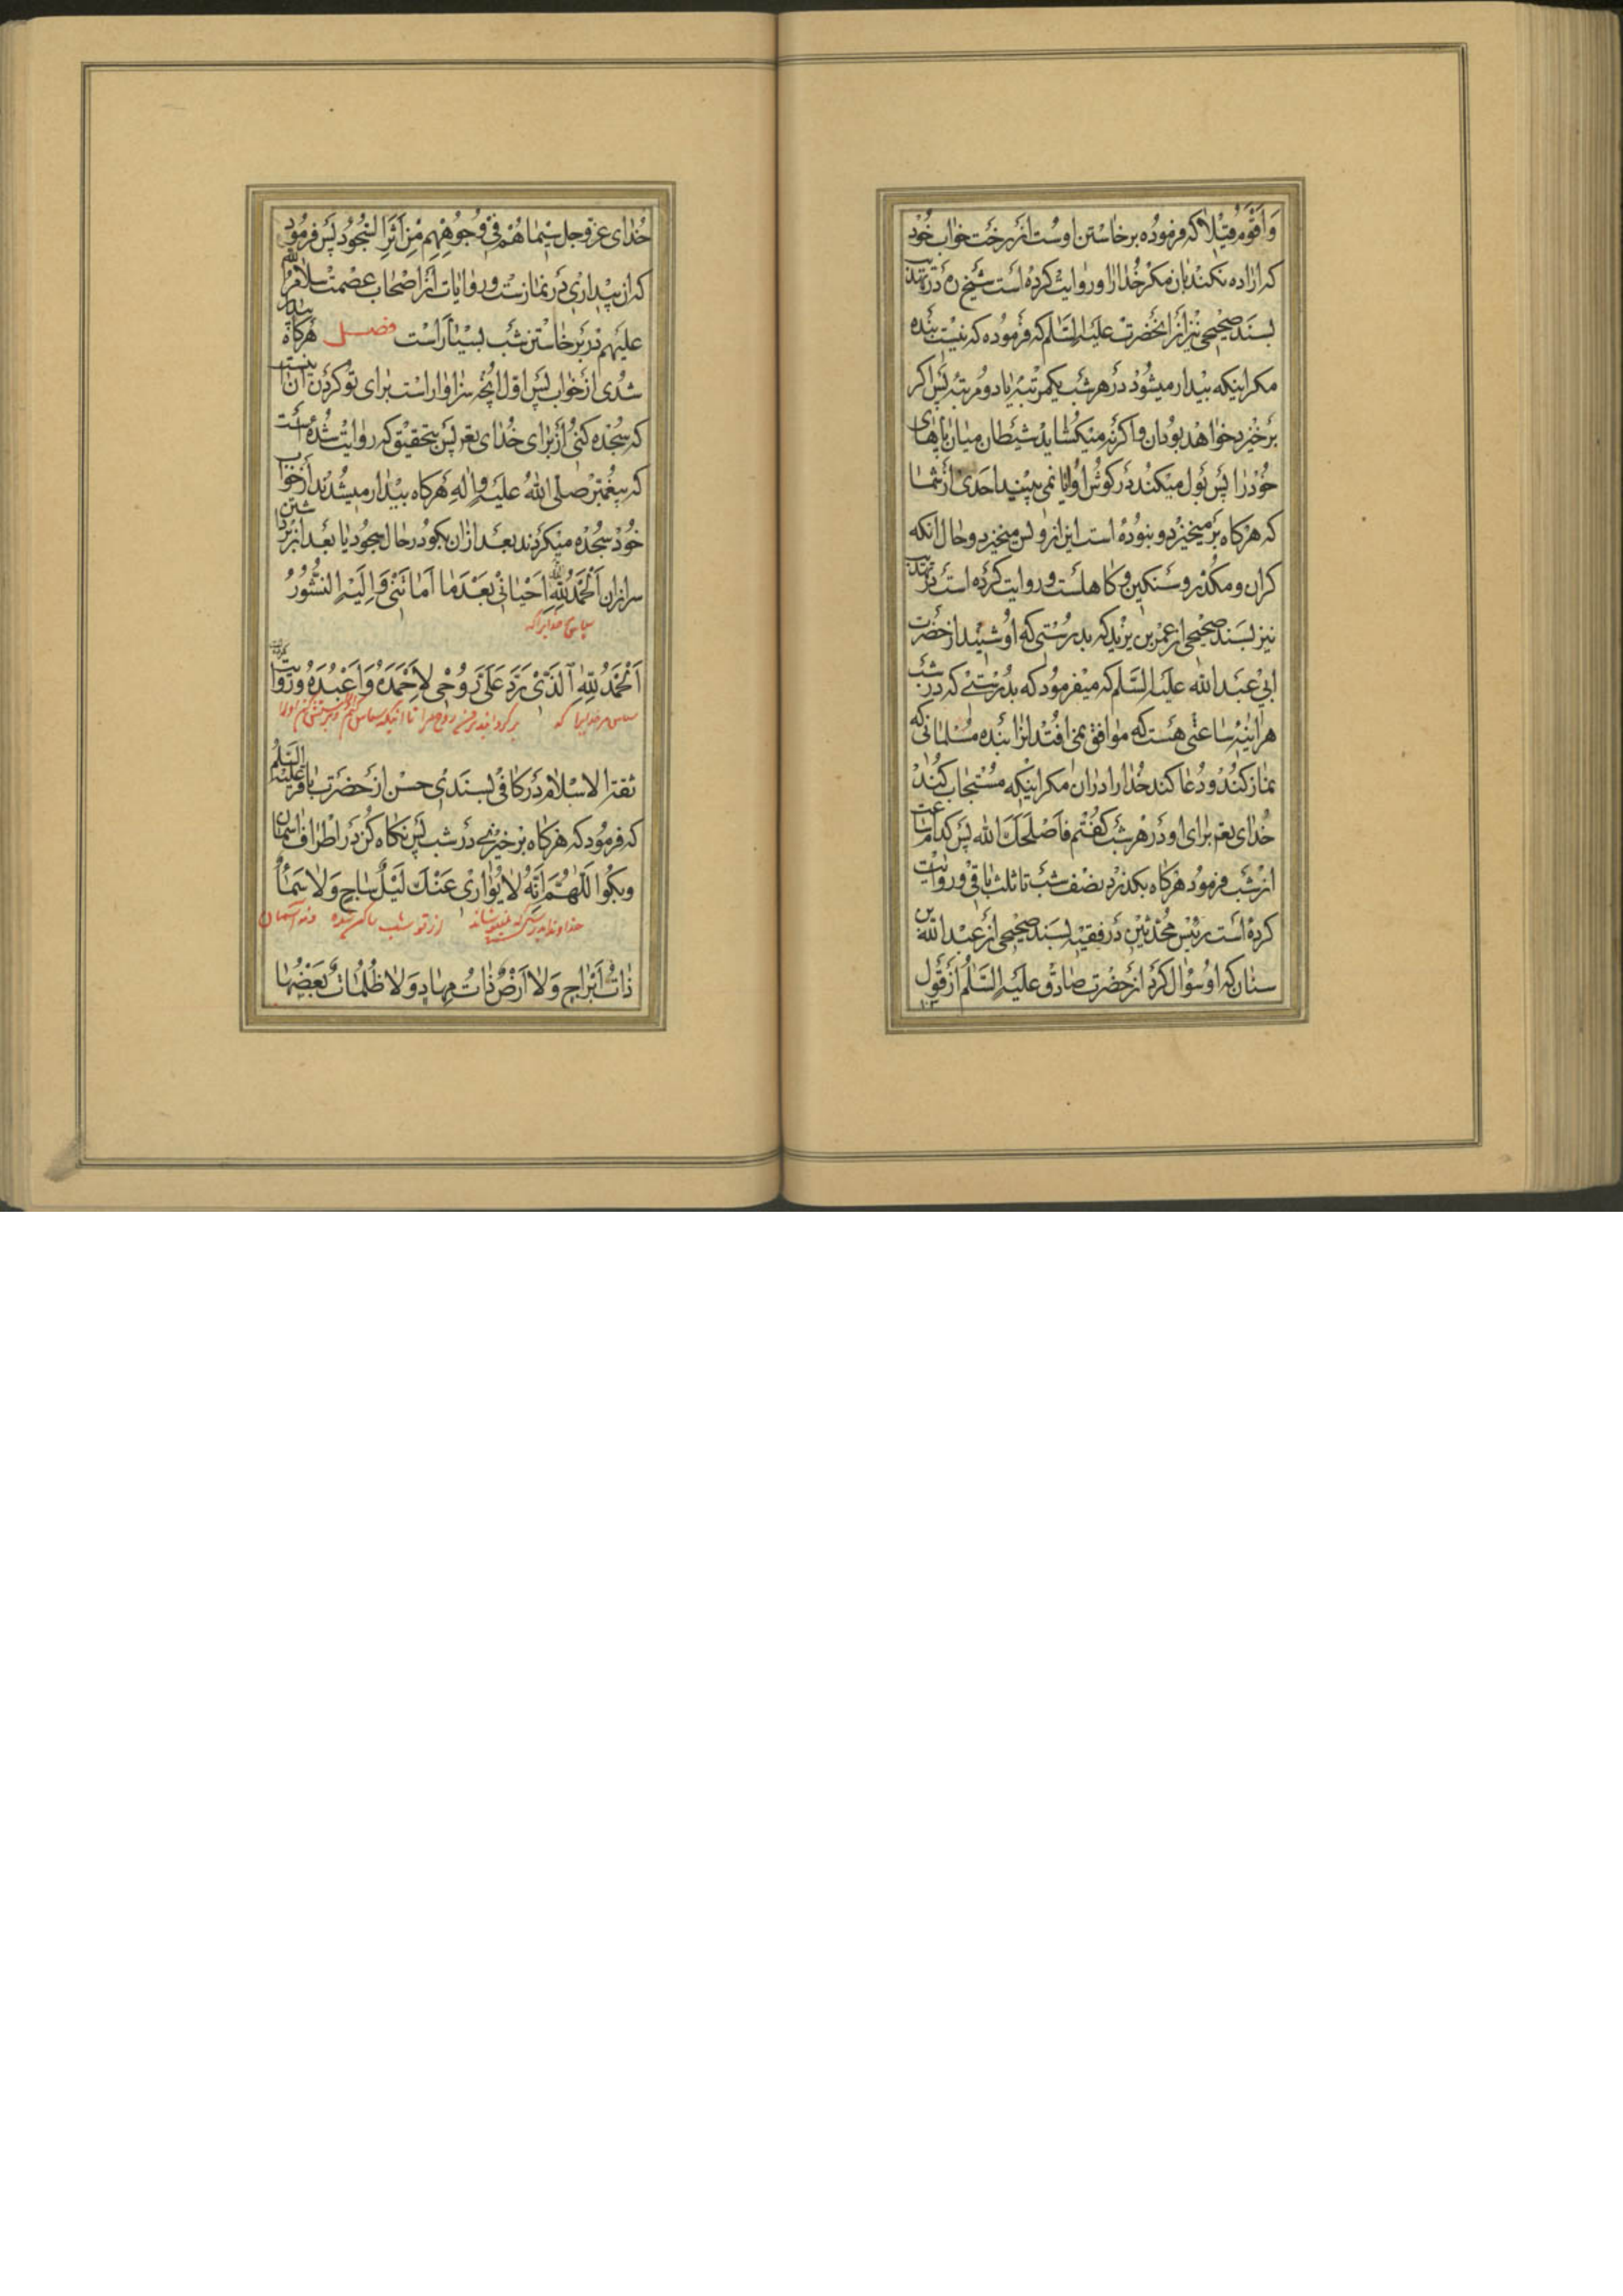 وَاَقْوَمُ قیلًا که فرموده برخاستن اوست از رخت خواب خود
که اراده نکند بان مکر خدا را و روایت کرده است شیخ ره در تهذیب
بسند صحیحی نیز از انحضرت علیه السّلم که فرموده که نیست بنده
مکر اینکه بیدار میشود در هر شب یکمرتبه یا دو مرتبه پس اکر
برخیزد خواهد بود ان و اکر نه میکشاید شیطان میان پاهای
خود را پس بول میکند در کوش او ایا نمی بیند احدی از شما
که هرکاه برمیخیزد و نبوده است این از او پس میخیزد و حال انکه
کران و مکدر و سنکین و کاهلست و روایت کرده است در تهذیب
نیز بسند صحیحی از عمر بن یزید که بدرستی که او شنید از حضرت
ابی عبد الله علیه السّلم که میفرمود که بدرستی که در شب
هراینه ساعتی هست که موافق نمی افتد انرا بنده مسلمانی که
نماز کند و دعا کند خدا را در ان مکر اینکه مستجاب کند
خدای تعم برای او در هر شب کفتم فاَصْلَحَكَ الله پس کدام ساعت
از شب فرمود هرکاه بکذرد نصف شب تا ثلث باقی و روایت
کرده است رئیس محدّثین در فقیه بسند صحیحی از عبد الله بن
سنان که او سؤال کرد از حضرت صادق علیه السّلم از قول
خدای عزّ و جل سیماهُمْ فی وُجُوهِهِم مِنْ اَثَرِ السُّجُود پس فرمود
که ان بیداری در نماز ست و روایات از اصحاب عصمت سلام الله
علیهم در برخاستن شب بسیار است فصل هرکاه بیدار
شدی از خواب پس اول انچه سزاوار است برای تو کردن ان اینست
که سجده کنی از برای خدای تعم پس بتحقیق که روایت شده است
که پیغمبر صلی الله علیه و اله هرکاه بیدار میشدند از خواب
خود سجده میکردند بعد از ان بکو در حال سجود یا بعد از برداشتن
سر از ان اَلْحَمْدُ لِلّٰهِ اَحْیانی بَعْدَ ما اَماتَنی وَ اِلَیْهِ النُّشُورُ
سپاس خدایرا که
اَلْحَمْدُ لِلّٰهِ الَّذی رَدَّ عَلَیَّ رُوحی لِاَحْمَدَهُ وَ اَعْبُدَهُ و روایت کرده
سپاس مر خدایرا که برکردانید بر من روح مرا تا اینکه سپاس کنم و پرستش کنم اورا
ثقة الاسلام در کافی بسندی حسن از حضرت باقر علیه السّلم
که فرمود که هرکاه برخیزی در شب پس نکاه کن در اطراف اسمان
و بکو اَللّٰهُمَّ اِنَّهُ لا یُواری عَنْكَ لَیْلٌ ساجٍ وَ لا سَماءٌ
خداوندا بدرستیکه نمیپوشاند از تو شب ساکن شده و نه آسمان
ذاتُ اَبْراجٍ وَ لا اَرْضٌ ذاتُ مِهادٍ وَ لا ظُلُماتٌ بَعْضُها